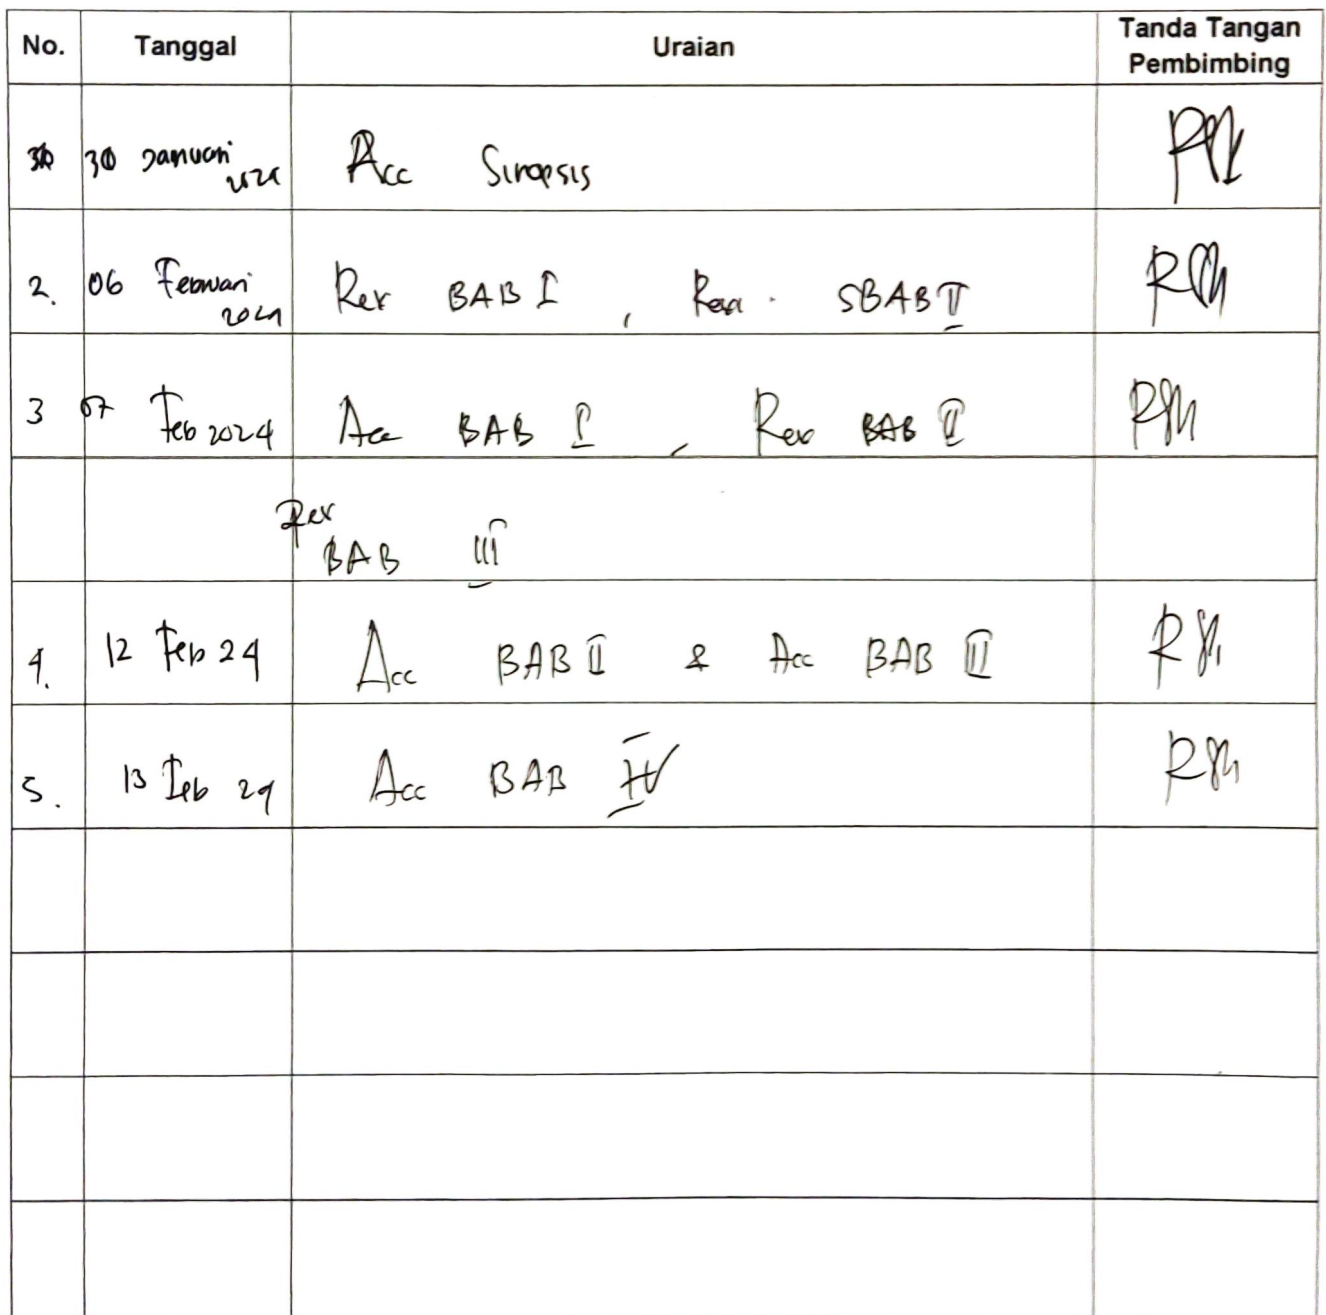 No. Tanggal Uraian Tanda Tangan Pembimbing
30 Januari 2024 Acc Sinopsis
2. 06 Februari 2024 Rev BAB I , BAB II
3 07 Feb 2024 Acc BAB I , Rev BAB II
Rev
BAB III
4. 12 Feb 24 Acc BAB II & Acc BAB III
5. 13 Feb 24 Acc BAB IV